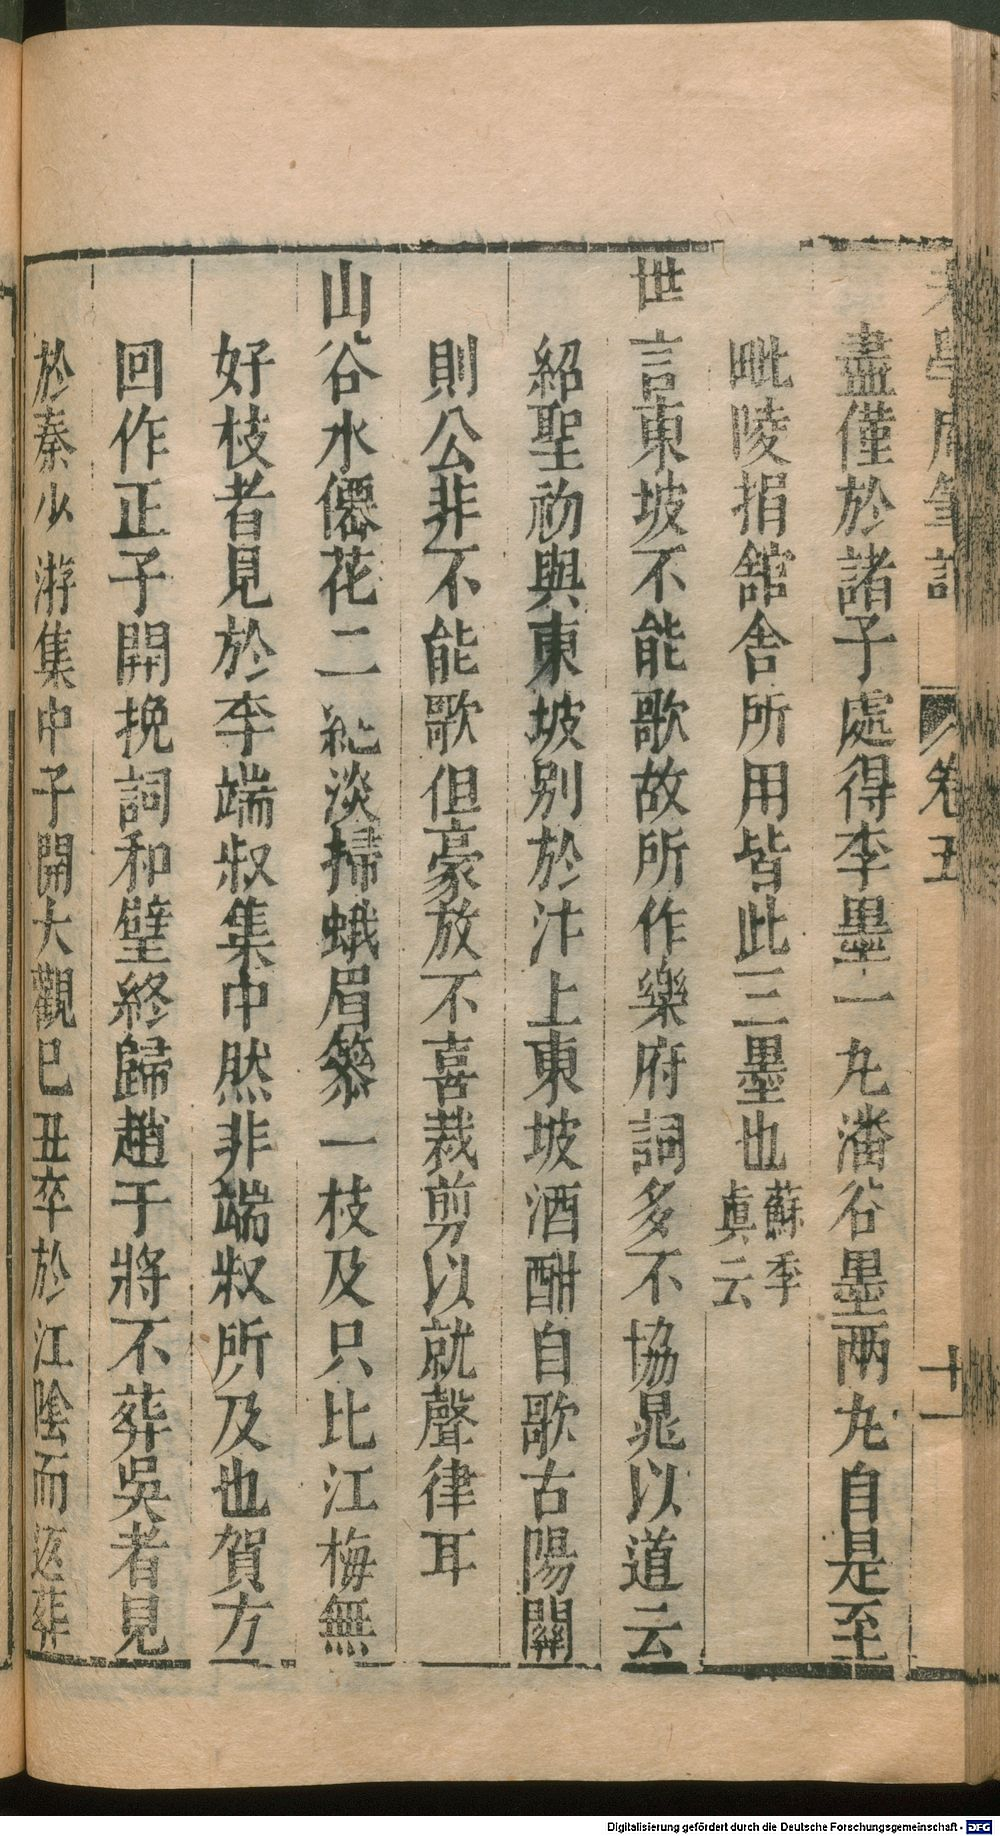 老學庵筆記 卷五 十一
盡僅於諸子處得李墨一丸潘谷墨兩丸自是至
毗陵捐舘舍所用皆此三墨也蘇季
真云
世言東坡不能歌故所作樂府詞多不協晁以道云
紹聖初與東坡別於汴上東坡酒酣自歌古陽關
則公非不能歌但豪放不喜裁剪以就聲律耳
山谷水僊花二絶淡掃蛾眉篸一枝及只比江梅無
好枝者見於李端叔集中然非端叔所及也賀方
回作正子開挽詞和璧終歸趙干將不葬吳者見
於秦少游集中子開大觀巳丑卒於江陰而返葬
Digitalisierung gefördert durch die Deutsche Forschungsgemeinschaft - DFG